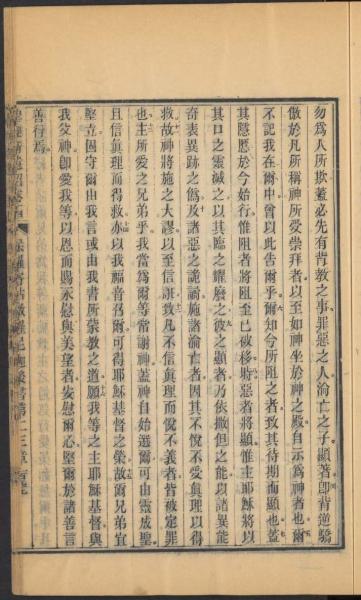 勿爲人所欺蓋必先有背教之事罪惡之人淪亡之子顯著卽背逆驕
傲於凡所稱神所受崇拜者以至如神坐於神之殿自示爲神者也爾
不記我在爾中曾以此告爾乎爾知今所阻之者致其待期而顯也蓋
其隱慝於今始行惟阻者將阻至已被移時惡者將顯惟主耶穌將以
其口之靈滅之以其臨之耀廢之彼之顯者乃依撒但之能以諸異能
奇表異跡之僞及諸惡之詭譎施諸淪亡者因其不悅不愛眞理以得
救故神將施之大謬以至信誑致凡不信眞理而悅不義者皆被定罪
也主所愛之兄弟乎我當爲爾等常謝神蓋神自始選爾可由靈成聖
且信眞理而得救亦以我福音召爾可得耶穌基督之榮故爾兄弟宜
堅立固守爾由我言或由我書所蒙教之道願我等之主耶穌基督與
我父神卽愛我等以恩而賜永慰與美望者安慰爾心堅爾於諸善言
善行焉